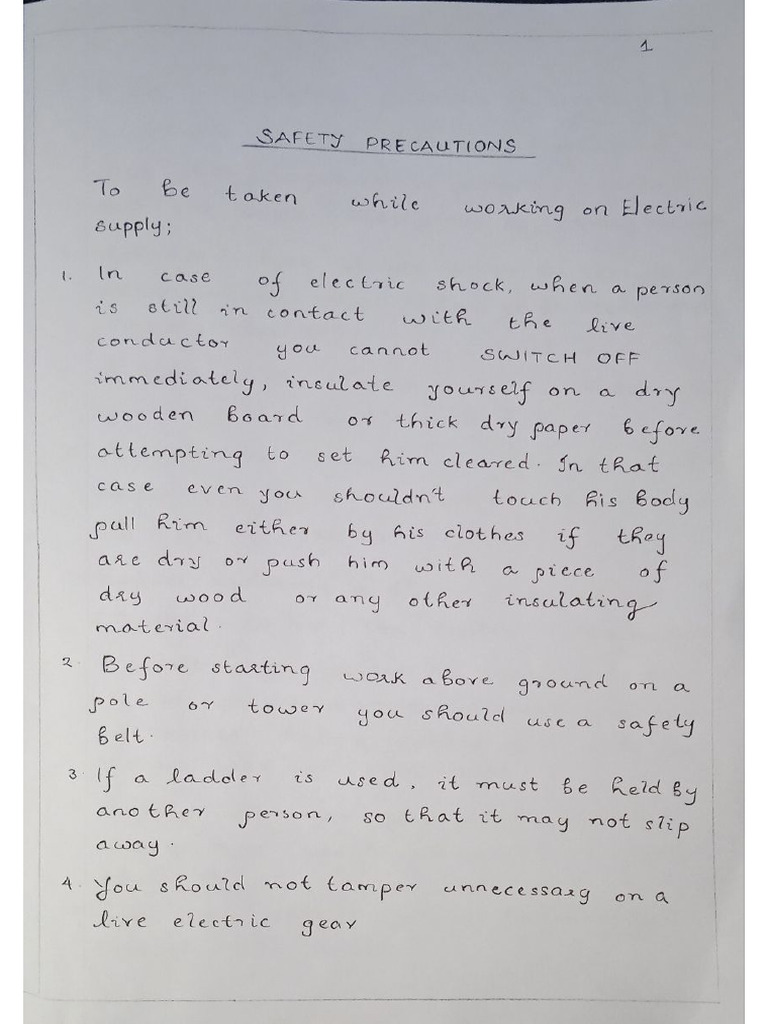 1
SAFETY PRECAUTIONS
To be taken while working on Electric
supply;
1. In case of electric shock, when a person
is still in contact with the live
conductor you cannot SWITCH OFF
immediately, insulate yourself on a dry
wooden board or thick dry paper before
attempting to set him cleared. In that
case even you shouldn't touch his body
pull him either by his clothes if they
are dry or push him with a piece of
dry wood or any other insulating
material.
2. Before starting work above ground on a
pole or tower you should use a safety
belt.
3. If a ladder is used, it must be held by
another person, so that it may not slip
away.
4. You should not tamper unnecessary on a
live electric gear